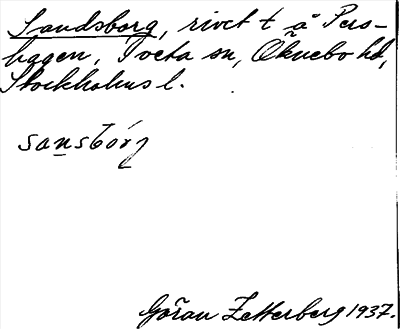 Sandsborg, rivet t å Pers-
hagen, Tveta sn, Öknebo hd,
Stockholms l.
sansbórj
Göran Zetterberg 1937.